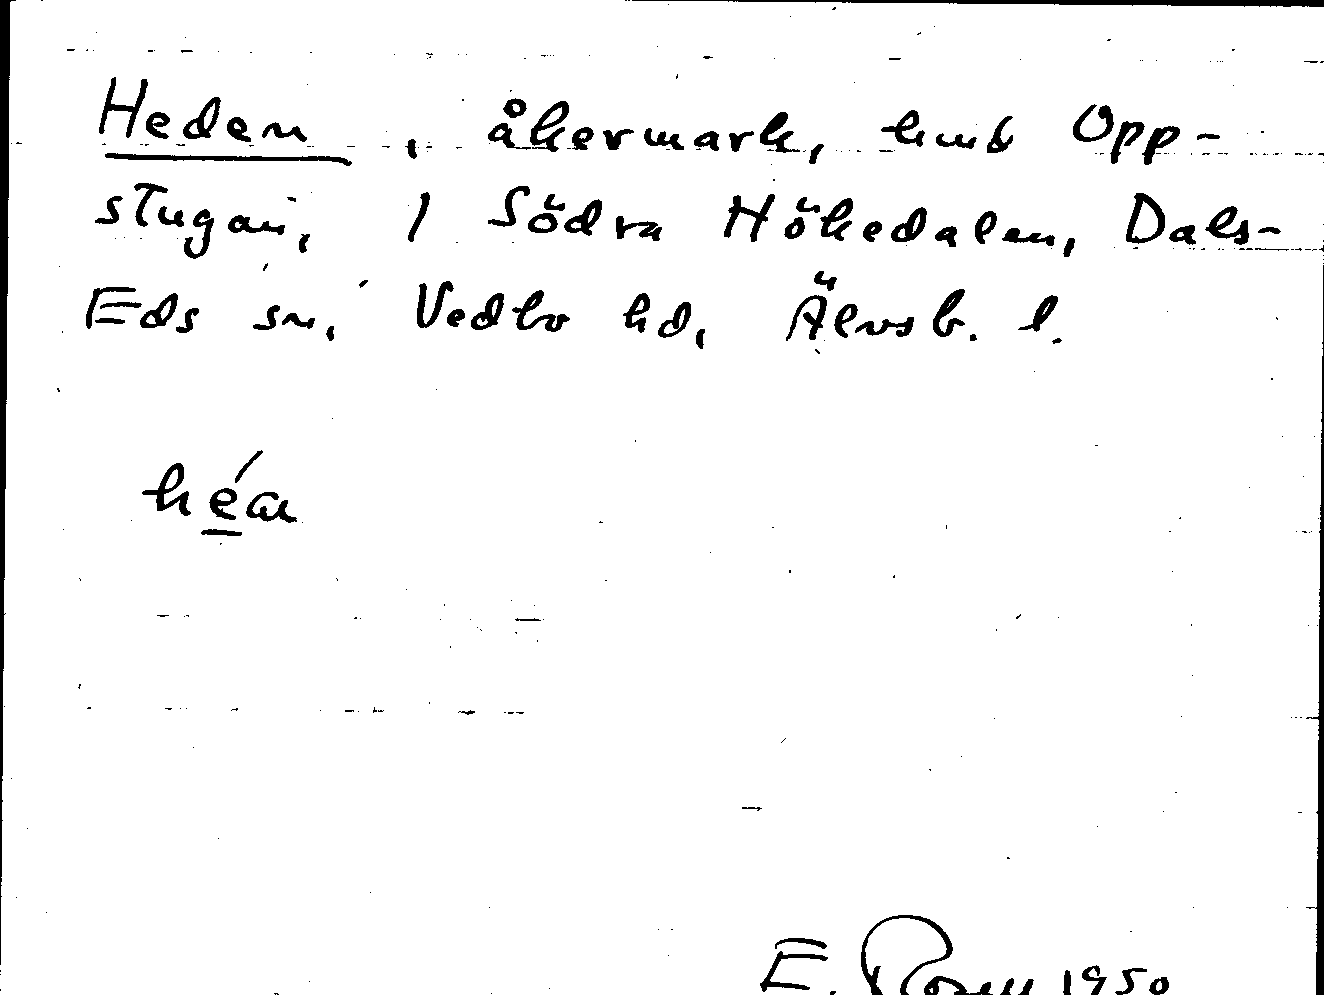 Heden, åkermark, hmb Opp-
stugan, 1 Södra Hökedalen, Dals-
Eds sn, Vedbo hd, Älvsb. l.
héa
E. Rosen 1950